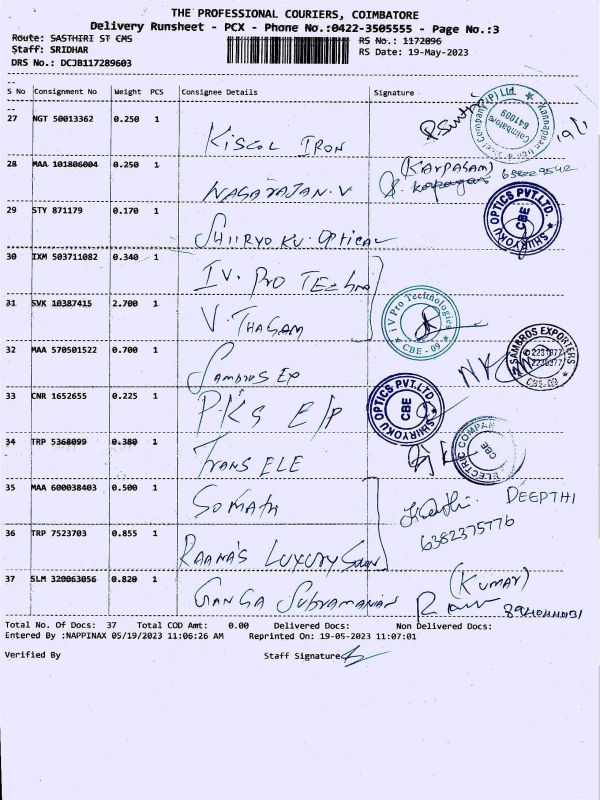 THE PROFESSIONAL COURIERS, COIMBATORE
Delivery Runsheet - PCX - Phone No.:0422-3505555 - Page No.:3
Route: SASTHIRI ST CMS RS No.: 1172896
Staff: SRIDHAR RS Date: 19-May-2023
DRS No.: DCJB117289603
S No Consignment No Weight PCS Consignee Details Signature
27 NGT 50013362 0.250 1 KISCOL IRON
Coimbatore 641009
19/
28 MAA 101806004 0.250 1 NAGARAJAN.V (KARPAGAM)
29 STY 871179 0.170 1 SHIIRYO KU. OPTICAL SHIIRYOKU OPTICS PVT.LTD. CBE
30 IXM 503711082 0.340 1 IV. PRO TECHNO
31 SVK 10387415 2.700 1 V. THASAM IV Pro Technologies CBE - 09
32 MAA 570501522 0.700 1 SAMBROS EX SAMBROS EXPORTERS CBE-09
33 CNR 1652655 0.225 1 P.K'S E/P SHIIRYOKU OPTICS PVT.LTD. CBE
34 TRP 5368099 0.380 1 TRANS ELE ELECTRIC COMPANY CBE
35 MAA 600038403 0.500 1 SOMATH DEEPTHI
6382375776
36 TRP 7523703 0.855 1 RAANA'S LUXURY
37 SLM 320063056 0.820 1 GANGA SUBRAMANIAN (KUMAR)
Total No. Of Docs: 37 Total COD Amt: 0.00 Delivered Docs: Non Delivered Docs:
Entered By :NAPPINAX 05/19/2023 11:06:26 AM Reprinted On: 19-05-2023 11:07:01
Verified By Staff Signature